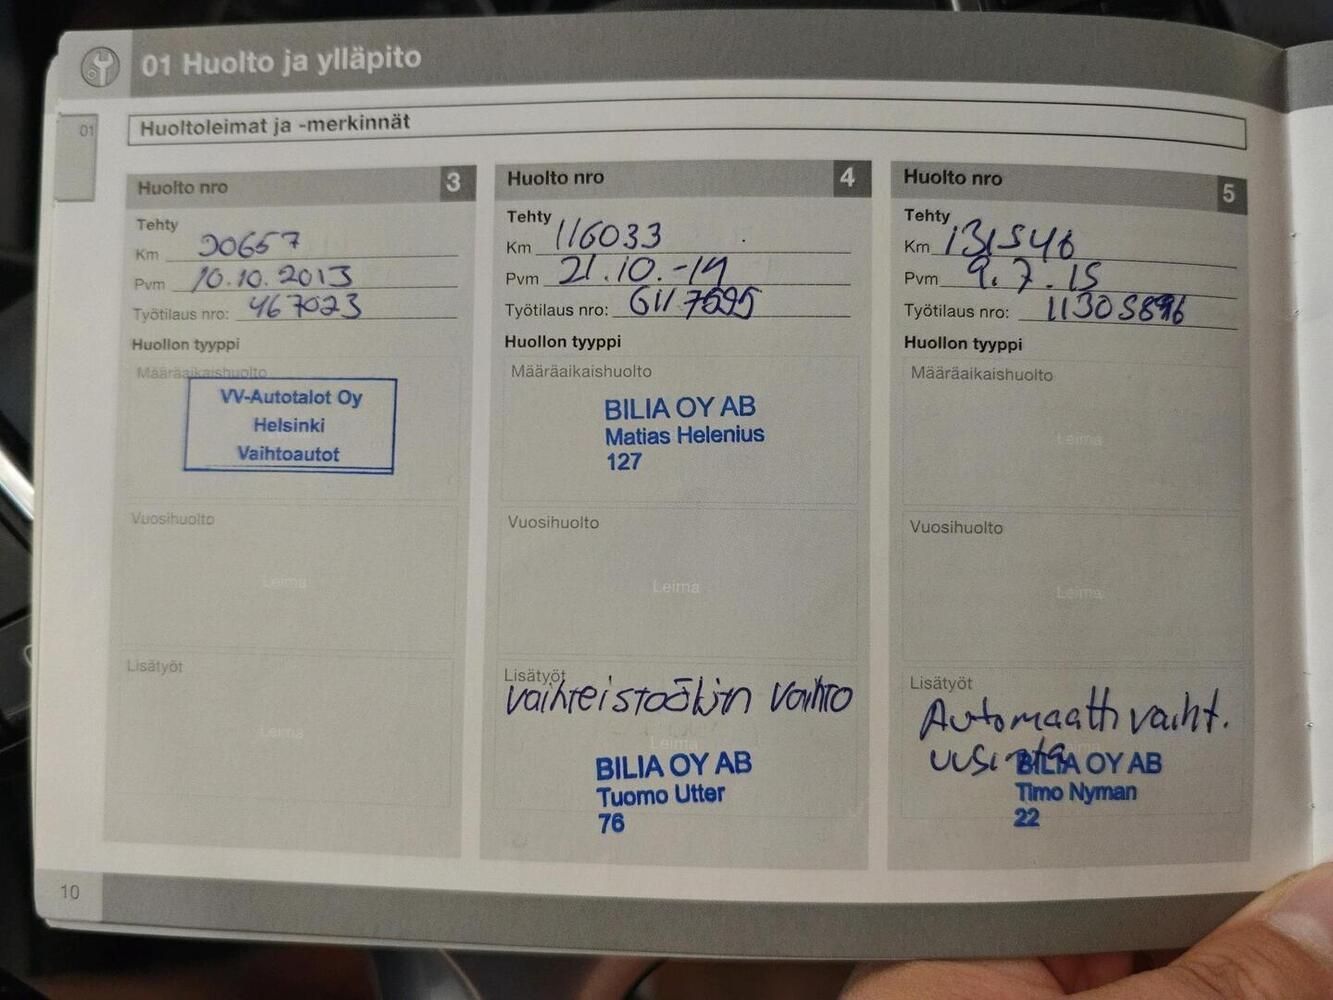 01 Huolto ja ylläpito
01
Huoltoleimat ja -merkinnät
Huolto nro 3
Tehty
Km 90657
Pvm 10.10.2013
Työtilaus nro: 467023
Huollon tyyppi
Määräaikaishuolto
VV-Autotalot Oy
Helsinki
Vaihtoautot
Vuosihuolto
Leima
Lisätyöt
Leima
Huolto nro 4
Tehty
Km 116033
Pvm 21.10.-14
Työtilaus nro: 6117595
Huollon tyyppi
Määräaikaishuolto
BILIA OY AB
Matias Helenius
127
Vuosihuolto
Leima
Lisätyöt
vaihteistoöljyn vaihto
Leima
BILIA OY AB
Tuomo Utter
76
Huolto nro 5
Tehty
Km 131546
Pvm 9.7.15
Työtilaus nro: 11305896
Huollon tyyppi
Määräaikaishuolto
Leima
Vuosihuolto
Leima
Lisätyöt
Automaatti vaiht.
uusinta
BILIA OY AB
Timo Nyman
22
10